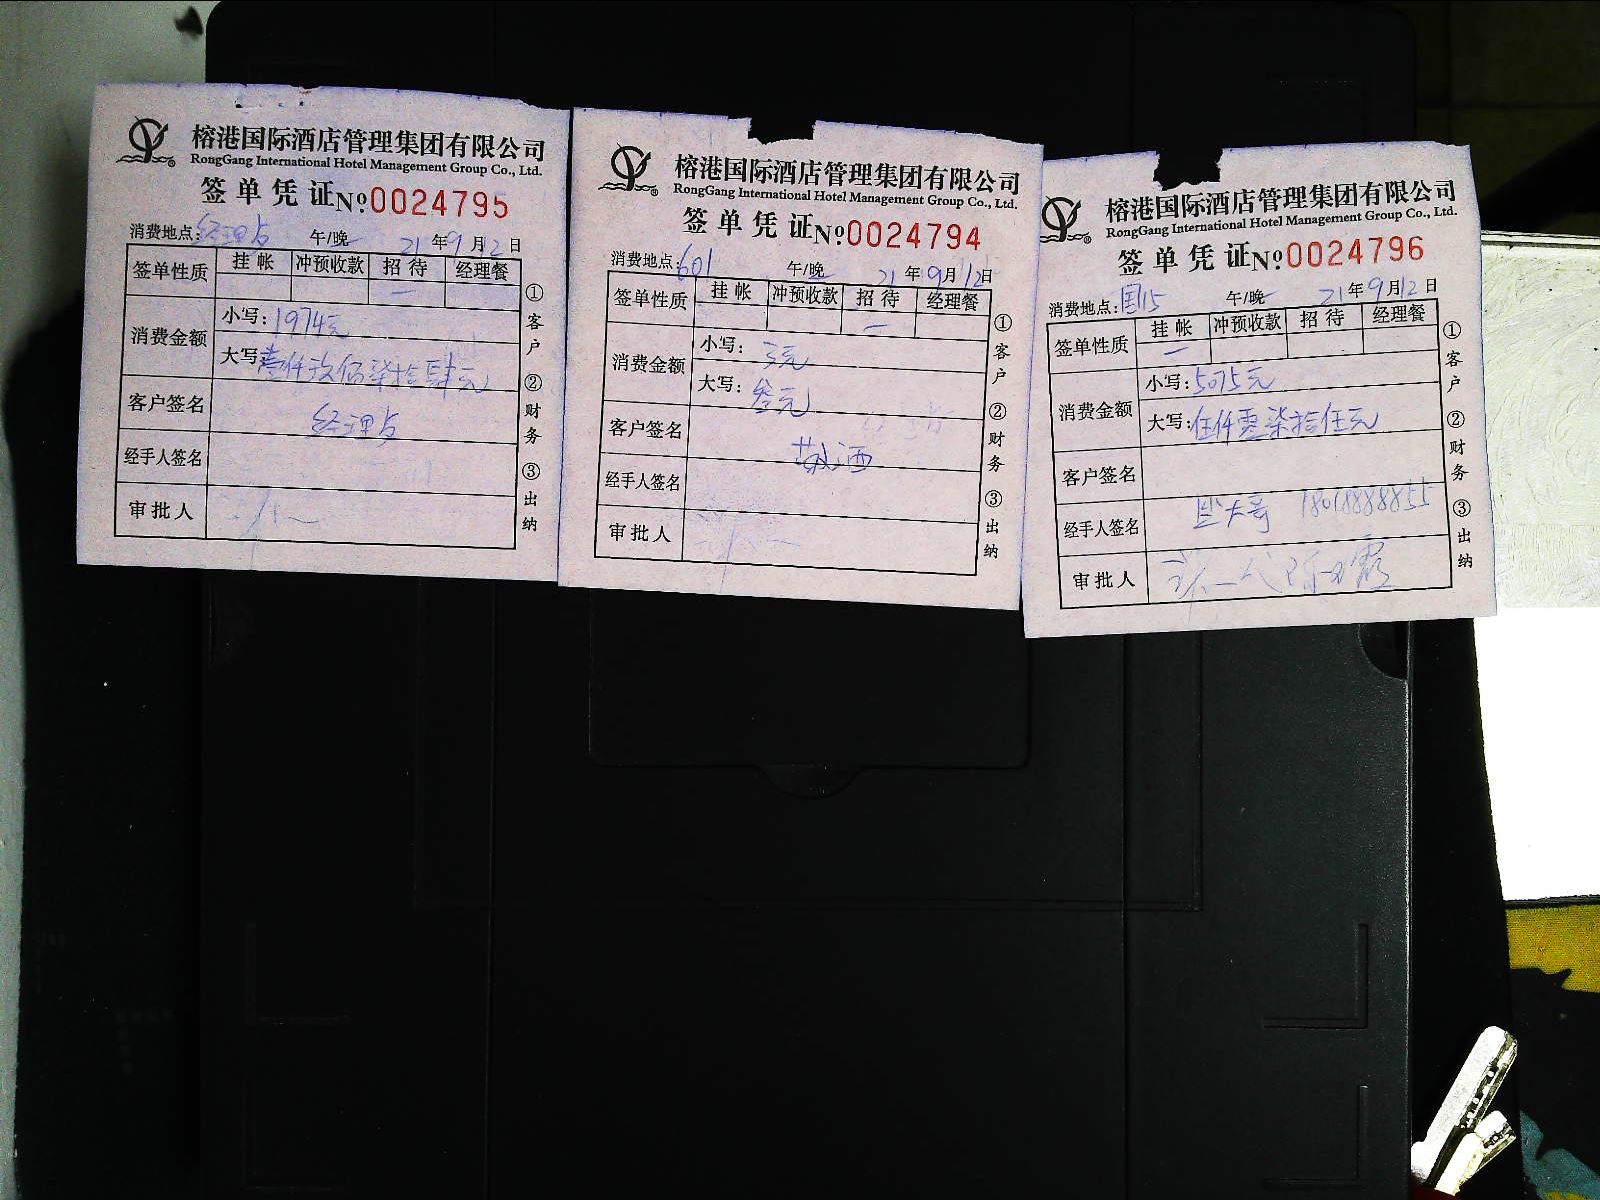 榕港国际酒店管理集团有限公司
RongGang International Hotel Management Group Co., Ltd.
签单凭证 №0024795
消费地点: 经理点 午/晚 21年9月12日
签单性质 挂帐 冲预收款 招待 经理餐
消费金额 小写: 1974元
大写: 壹仟玖佰柒拾肆元
客户签名 经理点
经手人签名
审批人
①客户 ②财务 ③出纳
榕港国际酒店管理集团有限公司
RongGang International Hotel Management Group Co., Ltd.
签单凭证 №0024794
消费地点: 601 午/晚 21年9月12日
签单性质 挂帐 冲预收款 招待 经理餐
消费金额 小写: 3元
大写: 叁元
客户签名 敬酒
经手人签名
审批人
①客户 ②财务 ③出纳
榕港国际酒店管理集团有限公司
RongGang International Hotel Management Group Co., Ltd.
签单凭证 №0024796
消费地点: 国15 午/晚 21年9月12日
签单性质 挂帐 冲预收款 招待 经理餐
消费金额 小写: 5075元
大写: 伍仟零柒拾伍元
客户签名
经手人签名 大哥 18018888855
审批人
①客户 ②财务 ③出纳